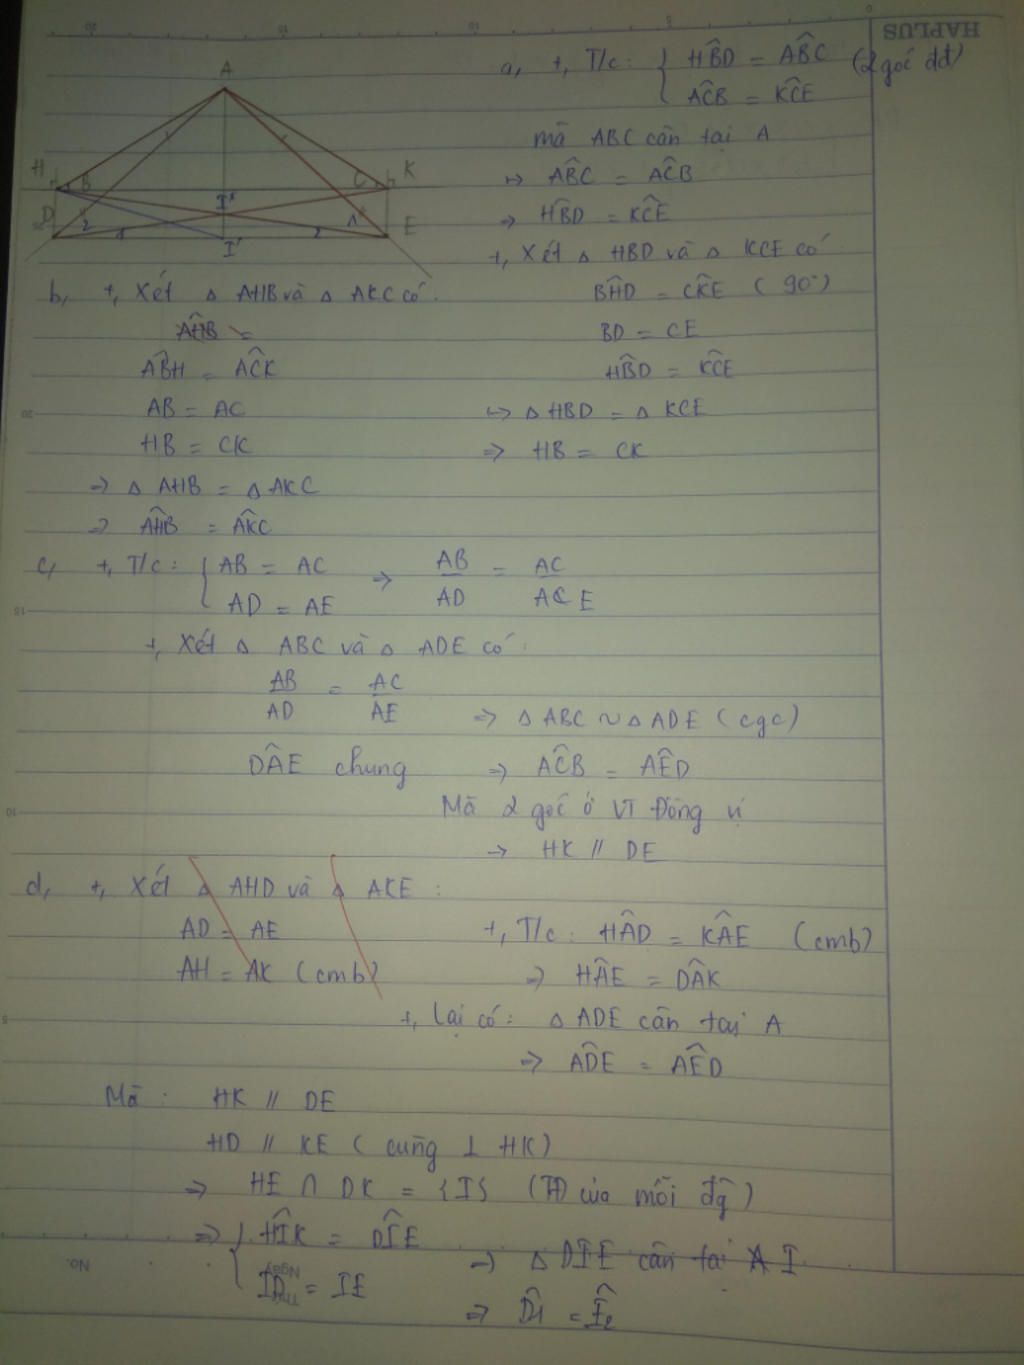 HAPLUS
a, +, T/c: { HB̂D = AB̂C (2 góc đđ)
AĈB = KĈE
mà ABC cân tại A
→ AB̂C = AĈB
⇒ HB̂D = KĈE
+, Xét △ HBD và △ KCE có
BĤD = CK̂E ( 90°)
BD = CE
HB̂D = KĈE
↪ △ HBD = △ KCE
⇒ HB = CK
A
H B C K
D 2 1 I 2 1 E
I'
b, +, Xét △ AHB và △ AKC có
AĤB =
AB̂H = AĈK
AB = AC
HB = CK
⇒ △ AHB = △ AKC
⇒ AĤB = AK̂C
c, +, T/c: { AB = AC ⇒ AB/AD = AC/AE
AD = AE
+, Xét △ ABC và △ ADE có:
AB/AD = AC/AE ⇒ △ ABC ~ △ ADE (cgc)
DÂE chung ⇒ AĈB = AÊD
Mà 2 góc ở VT Đồng vị
→ HK // DE
d, +, Xét △ AHD và △ AKE :
AD = AE
AH = AK (cmb)
+, T/c: HÂD = KÂE (cmb)
⇒ HÂE = DÂK
+, Lại có: △ ADE cân tại A
⇒ AD̂E = AÊD
Mà : HK // DE
HD // KE ( cùng ⊥ HK)
⇒ HE ∩ DK = {I} (TĐ của mỗi đg)
⇒ { HÎK = DÎE
ID = IE
⇒ △ DIE cân tại I
⇒ D̂1 = Ê2
No.